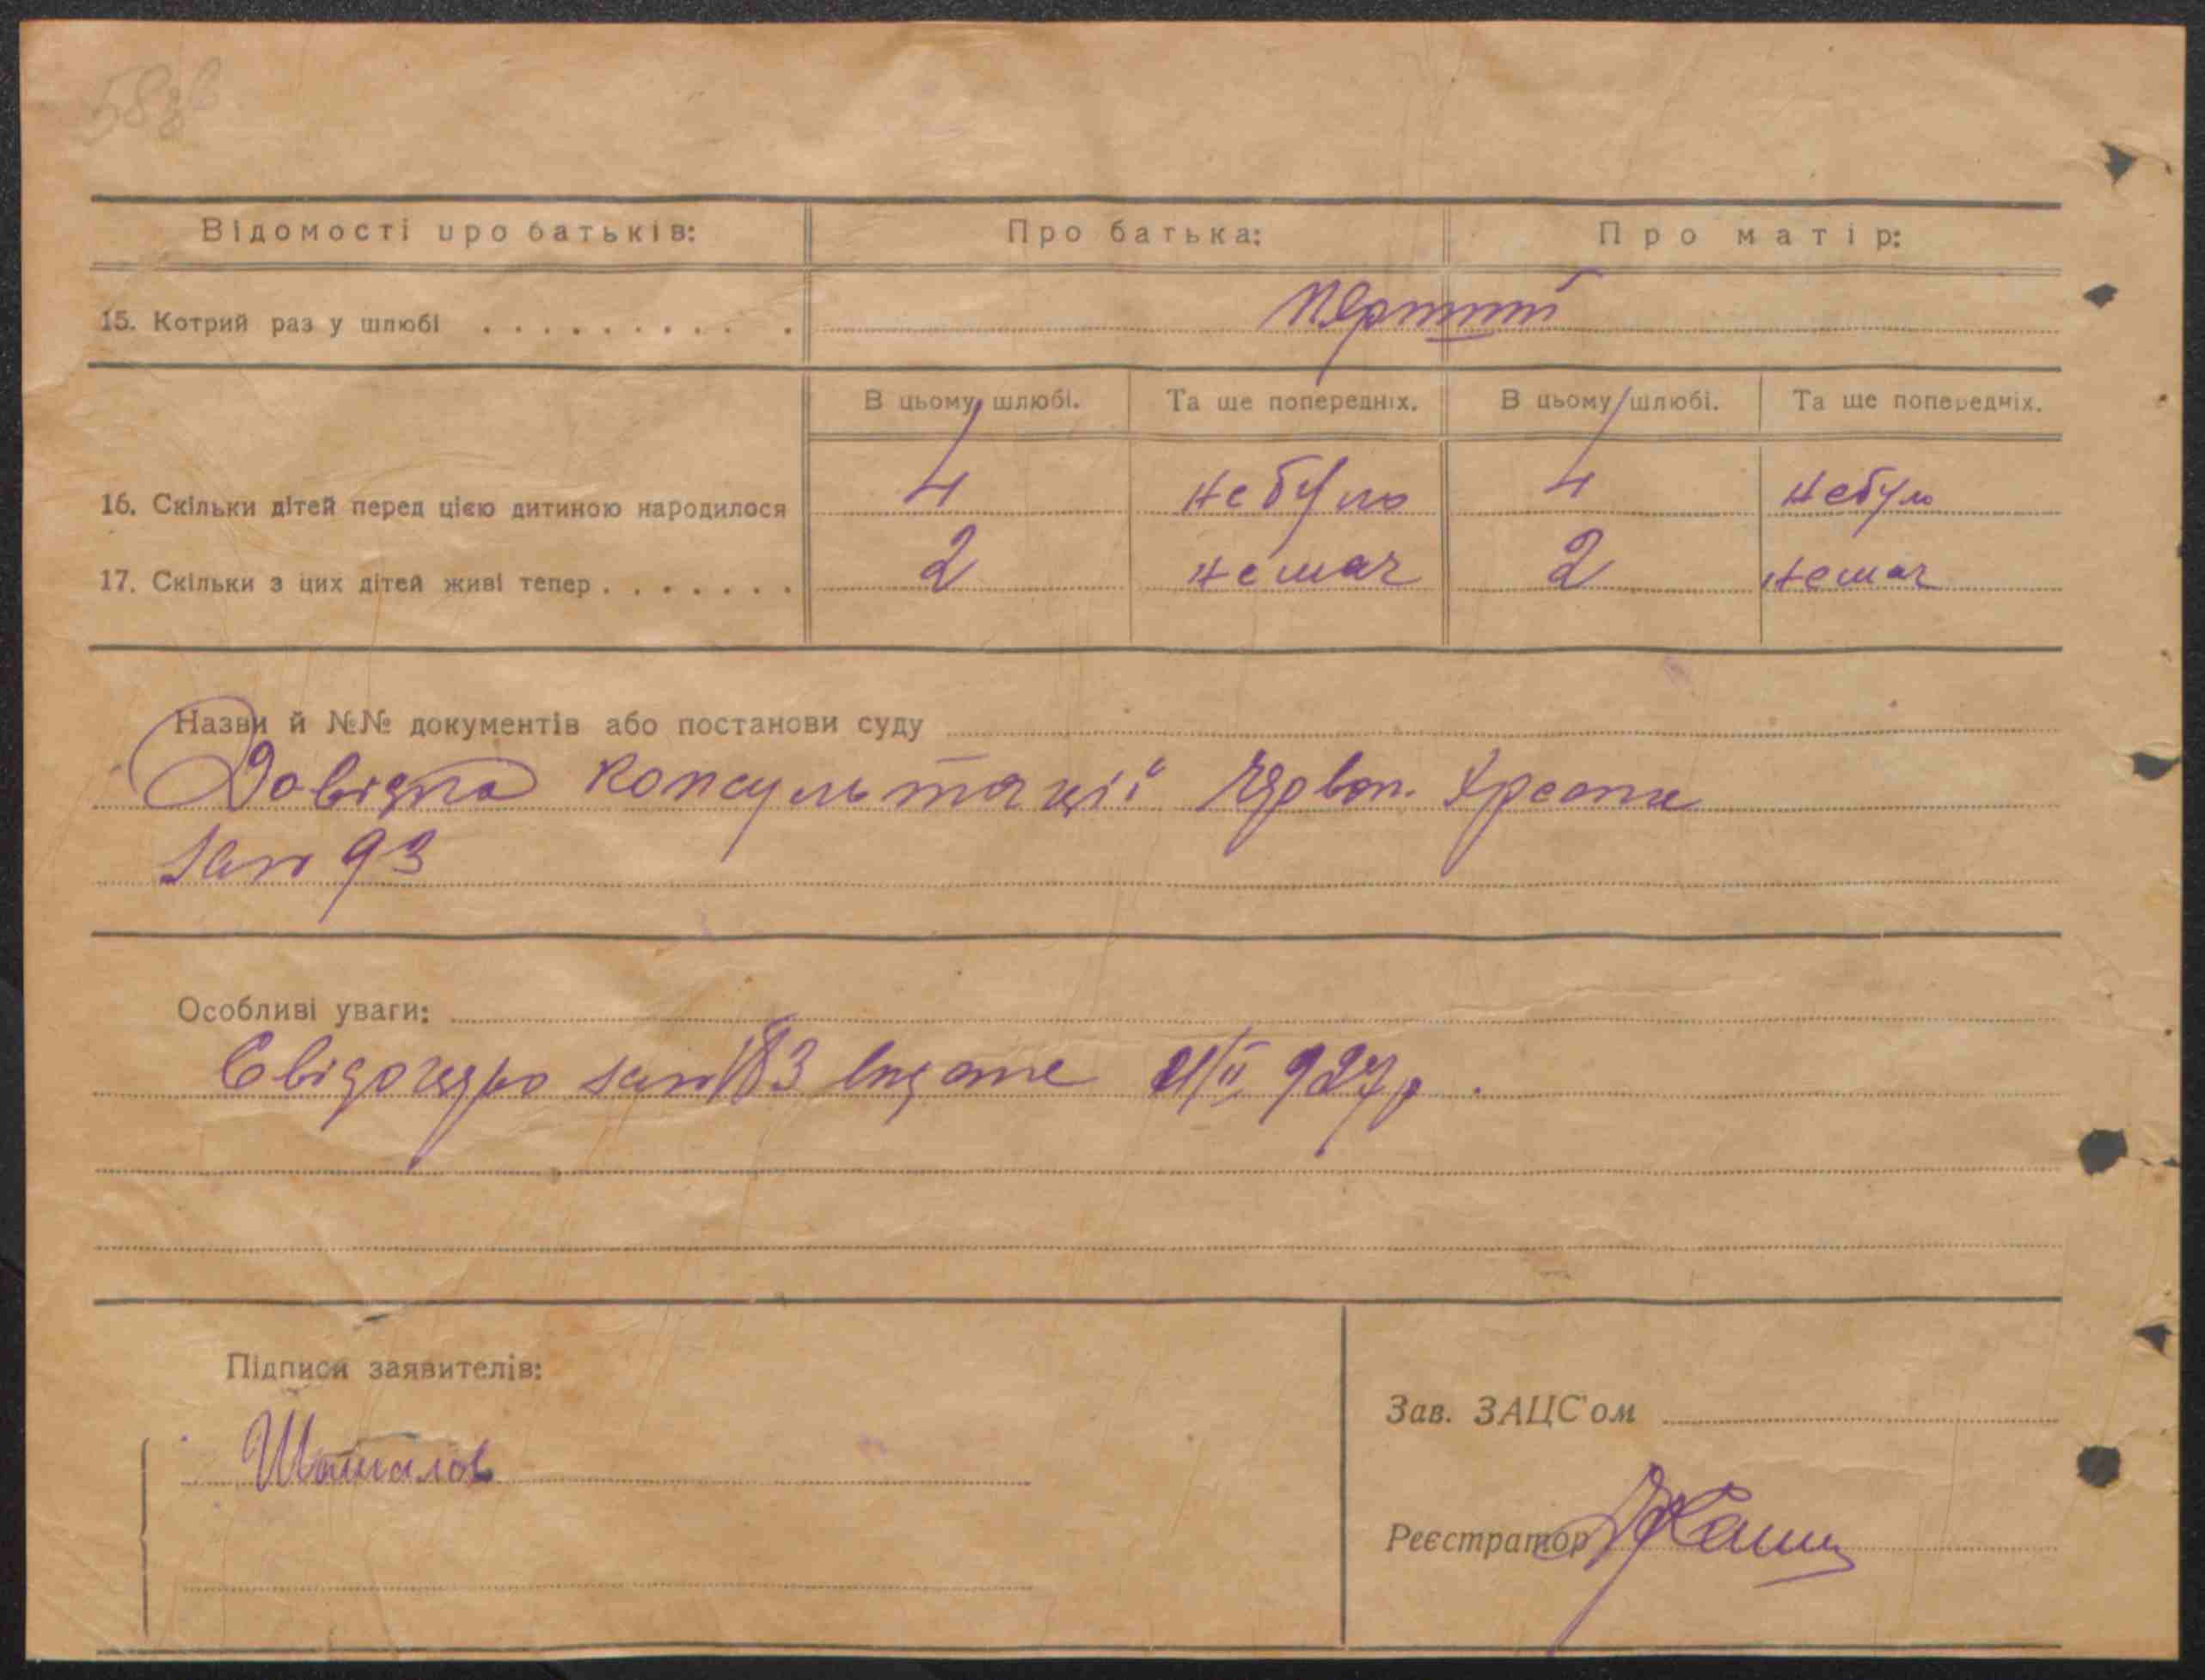 58
Відомості про батьків: Про батька: Про матір:
15. Котрий раз у шлюбі . . . . . . . . . . перший
В цьому шлюбі. Та ще попередніх. В цьому шлюбі. Та ще попередніх.
16. Скільки дітей перед цією дитиною народилося 4 не було 4 не було
17. Скільки з цих дітей живі тепер . . . . . . . 2 немає 2 немає
Назви й №№ документів або постанови суду
Довідка консультації Червон. Хреста
за № 93
Особливі уваги:
Свідоцтво за № 183 видане 21/II 927 р.
Підписи заявителів:
Зав. ЗАЦС'ом
Шаталов
Реєстратор